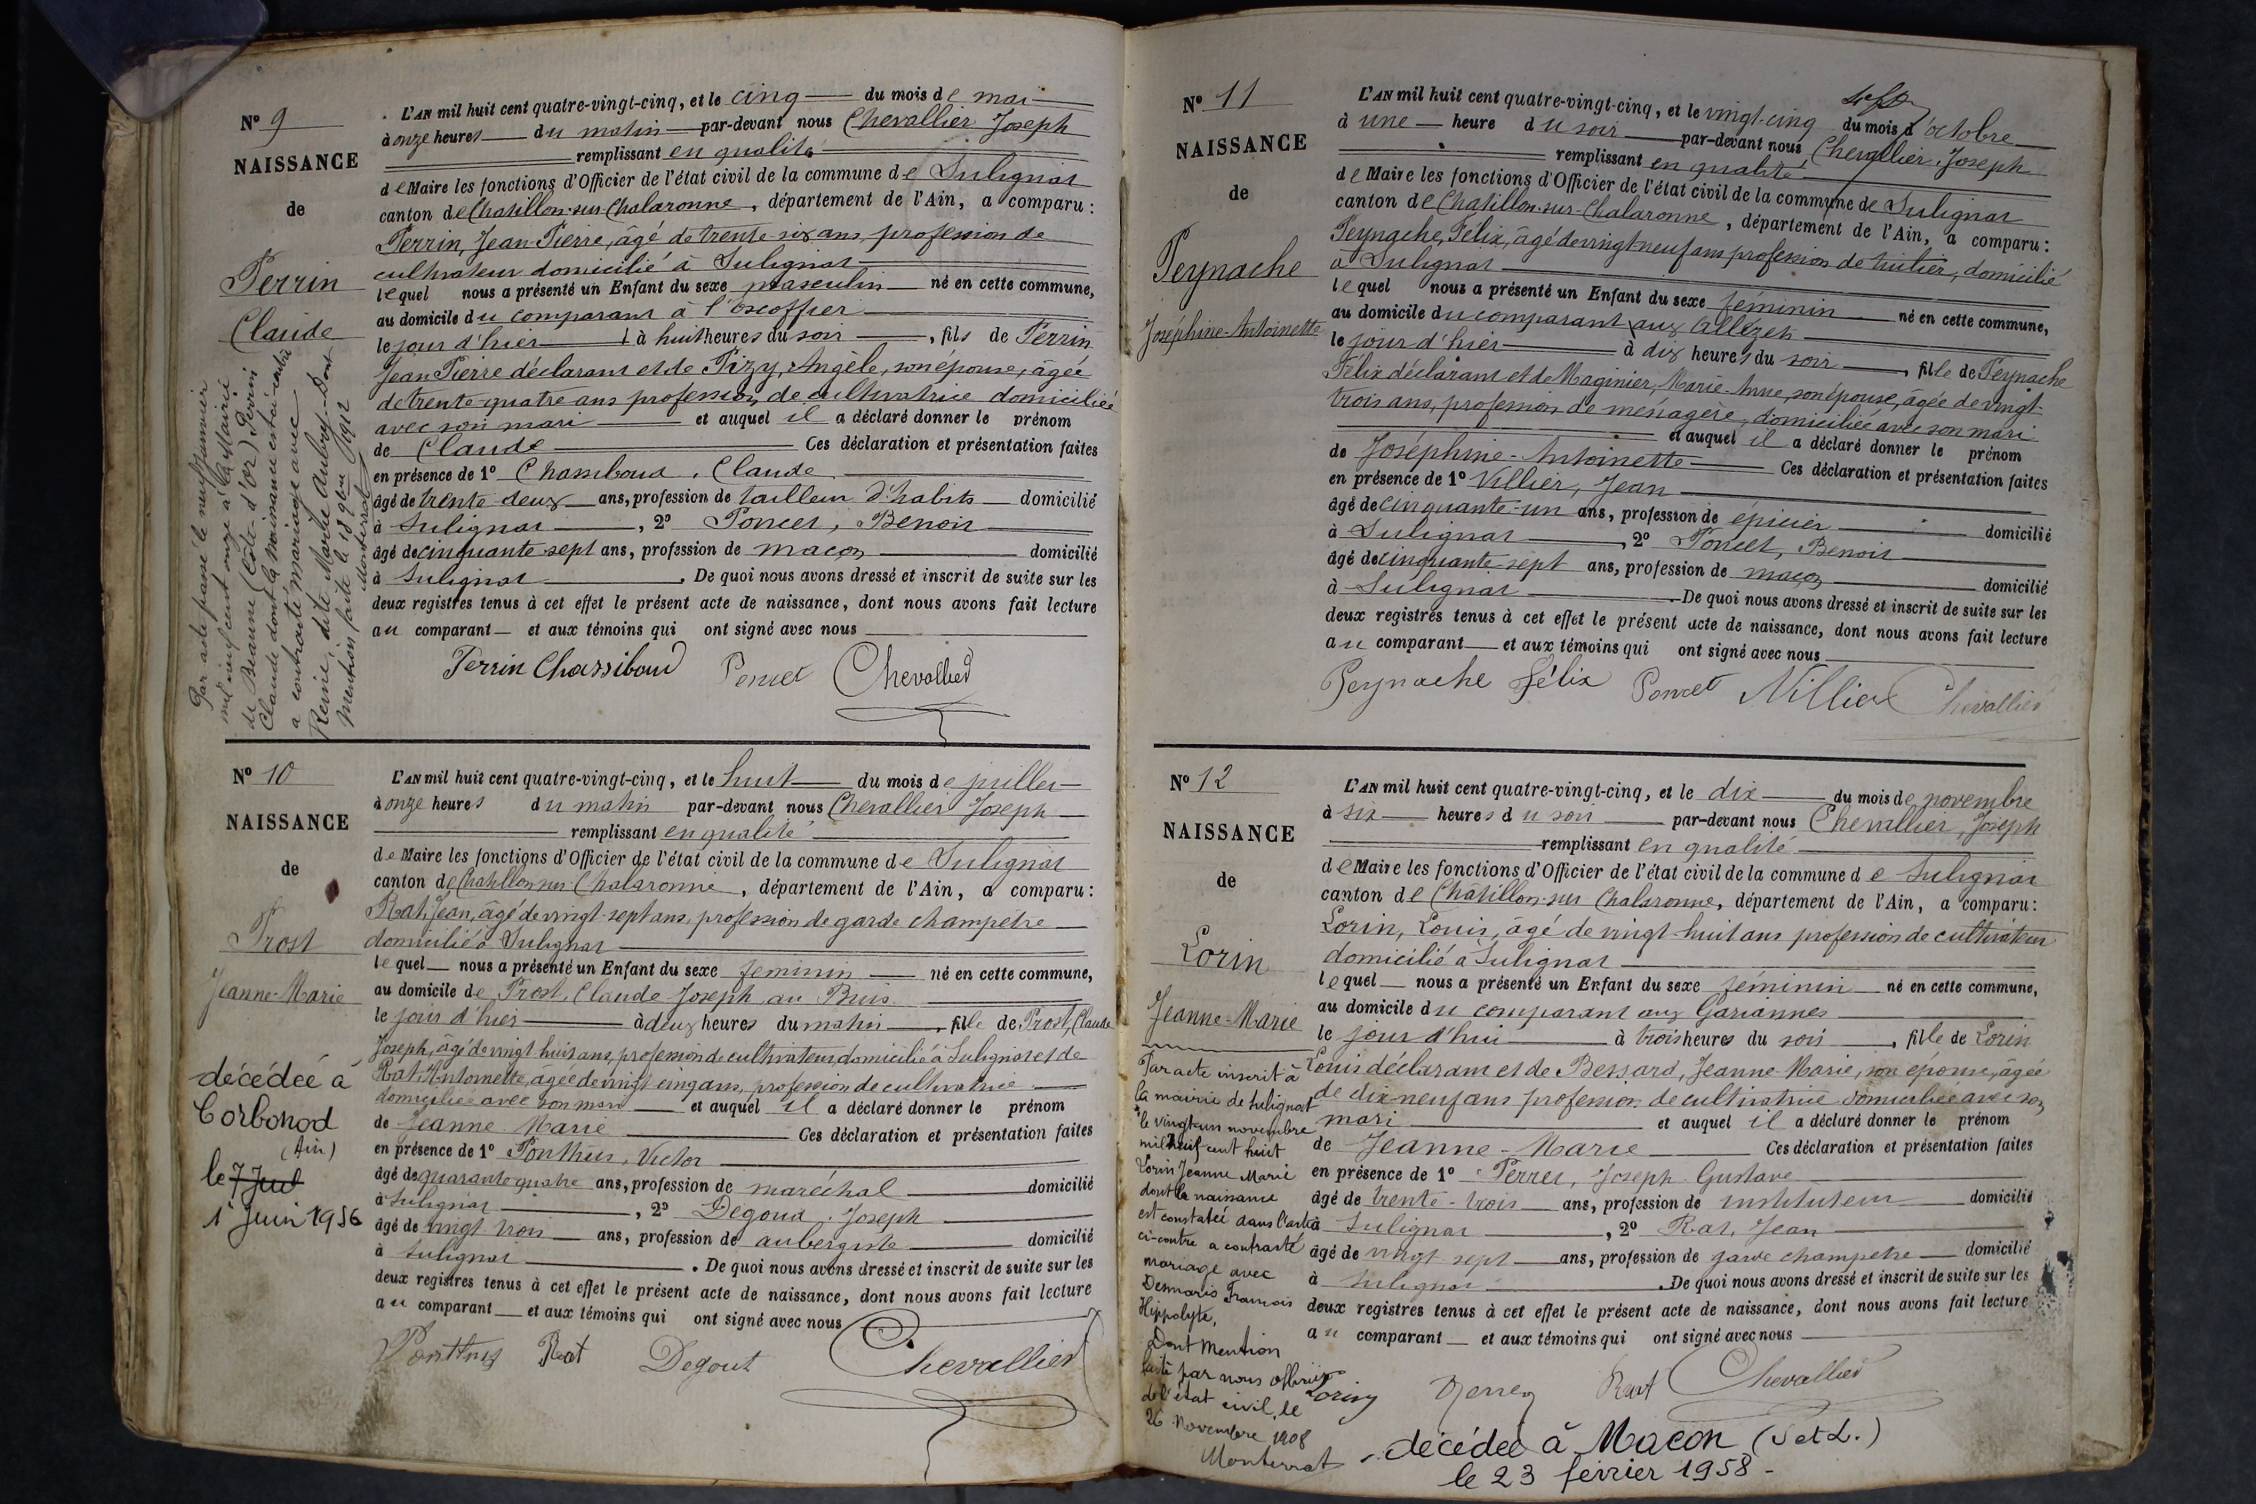 Nº 9
NAISSANCE
de
Perrin
Claude
Par acte passé le neuf janvier
mil neuf cent onze à la Mairie
de Beaune (Côte-d'Or) Perrin
Claude dont la naissance est ci-contre
a contracté mariage avec
Reine, dite Marthe Aubry. Dont
Mention faite le 18 1912
Monterrat
L'AN mil huit cent quatre-vingt-cinq, et le cinq du mois de mai
à onze heures du matin par-devant nous Chevallier Joseph
remplissant en qualité
de Maire les fonctions d'Officier de l'état civil de la commune de Sulignat
canton de Chatillon-sur-Chalaronne, département de l'Ain, a comparu :
Perrin, Jean-Pierre, âgé de trente-six ans, profession de
cultivateur domicilié à Sulignat
lequel nous a présenté un Enfant du sexe masculin né en cette commune,
au domicile du comparant à l'escoffier
le jour d'hier à huit heures du soir, fils de Perrin
Jean Pierre déclarant et de Pizy, Angèle, son épouse, âgée
de trente-quatre ans profession de cultivatrice domiciliée
avec son mari et auquel il a déclaré donner le prénom
de Claude Ces déclaration et présentation faites
en présence de 1º Chamboud, Claude
âgé de trente-deux ans, profession de tailleur d'habits domicilié
à Sulignat, 2º Poncet, Benoit
âgé de cinquante-sept ans, profession de maçon domicilié
à Sulignat. De quoi nous avons dressé et inscrit de suite sur les
deux registres tenus à cet effet le présent acte de naissance, dont nous avons fait lecture
au comparant et aux témoins qui ont signé avec nous
Perrin Chassiboud Poncet Chevallier
Nº 10
NAISSANCE
de
Prost
Jeanne-Marie
décédée à
Corbonod
(Ain)
le 7 Juil
1 Juin 1956
L'AN mil huit cent quatre-vingt-cinq, et le huit du mois de juillet
à onze heures du matin par-devant nous Chevallier Joseph
remplissant en qualité
de Maire les fonctions d'Officier de l'état civil de la commune de Sulignat
canton de Chatillon-sur-Chalaronne, département de l'Ain, a comparu :
Rat, Jean, âgé de vingt-sept ans, profession de garde champetre
domicilié à Sulignat
lequel nous a présenté un Enfant du sexe feminin né en cette commune,
au domicile de Prost, Claude Joseph au Buis
le jour d'hier à deux heures du matin, fille de Prost, Claude
Joseph, âgé de vingt-huit ans, profession de cultivateur domicilié à Sulignat et de
Rat, Antoinette, âgée de vingt cinq ans, profession de cultivatrice
domiciliée avec son mari et auquel il a déclaré donner le prénom
de Jeanne Marie Ces déclaration et présentation faites
en présence de 1º Ponthus, Victor
âgé de quarante quatre ans, profession de maréchal domicilié
à Sulignat, 2º Degoud, Joseph
âgé de vingt trois ans, profession de aubergiste domicilié
à Sulignat. De quoi nous avons dressé et inscrit de suite sur les
deux registres tenus à cet effet le présent acte de naissance, dont nous avons fait lecture
au comparant et aux témoins qui ont signé avec nous
Ponthus Rat Degout Chevallier
Nº 11
NAISSANCE
de
Peynache
Joséphine-Antoinette
L'AN mil huit cent quatre-vingt-cinq, et le vingt-cinq du mois d'octobre
à une heure du soir par-devant nous Chevallier, Joseph
remplissant en qualité
de Maire les fonctions d'Officier de l'état civil de la commune de Sulignat
canton de Chatillon-sur-Chalaronne, département de l'Ain, a comparu :
Peynache, Félix, âgé de vingt-neuf ans profession de tuilier, domicilié
à Sulignat
lequel nous a présenté un Enfant du sexe féminin né en cette commune,
au domicile du comparant aux Allizets
le jour d'hier à dix heures du soir, fille de Peynache
Félix déclarant et de Maginier, Marie-Anne, son épouse, âgée de vingt-
trois ans, profession de ménagère, domiciliée avec son mari
et auquel il a déclaré donner le prénom
de Joséphine-Antoinette Ces déclaration et présentation faites
en présence de 1º Villier, Jean
âgé de cinquante-un ans, profession de épicier domicilié
à Sulignat, 2º Poncet, Benoit
âgé de cinquante-sept ans, profession de maçon domicilié
à Sulignat. De quoi nous avons dressé et inscrit de suite sur les
deux registres tenus à cet effet le présent acte de naissance, dont nous avons fait lecture
au comparant et aux témoins qui ont signé avec nous
Peynache Félix Poncet Villier Chevallier
Nº 12
NAISSANCE
de
Lorin
Jeanne-Marie
Par acte inscrit à
la mairie de Sulignat
le vingt un novembre
mil neuf cent huit
Lorin Jeanne Marie
dont la naissance
est constatée dans l'acte
ci-contre a contracté
mariage avec
Desmaris François
Hippolyte,
Dont Mention
faite par nous officier
de l'état civil, le
26 Novembre 1908
Monterrat
L'AN mil huit cent quatre-vingt-cinq, et le dix du mois de novembre
à six heures du soir par-devant nous Chevallier, Joseph
remplissant en qualité
de Maire les fonctions d'Officier de l'état civil de la commune de Sulignat
canton de Châtillon-sur-Chalaronne, département de l'Ain, a comparu :
Lorin, Louis, âgé de vingt-huit ans profession de cultivateur
domicilié à Sulignat
lequel nous a présenté un Enfant du sexe féminin né en cette commune,
au domicile du comparant aux Gariannes
le jour d'hui à trois heures du soir, fille de Lorin
Louis déclarant et de Bessard, Jeanne Marie, son épouse, âgée
de dix-neuf ans profession de cultivatrice domiciliée avec son
mari et auquel il a déclaré donner le prénom
de Jeanne-Marie Ces déclaration et présentation faites
en présence de 1º Perret, Joseph Gustave
âgé de trente-trois ans, profession de instituteur domicilié
à Sulignat, 2º Rat, Jean
âgé de vingt sept ans, profession de garde champetre domicilié
à Sulignat. De quoi nous avons dressé et inscrit de suite sur les
deux registres tenus à cet effet le présent acte de naissance, dont nous avons fait lecture
au comparant et aux témoins qui ont signé avec nous
Lorin Perret Rat Chevallier
décédée à Macon (S et L.)
le 23 février 1958